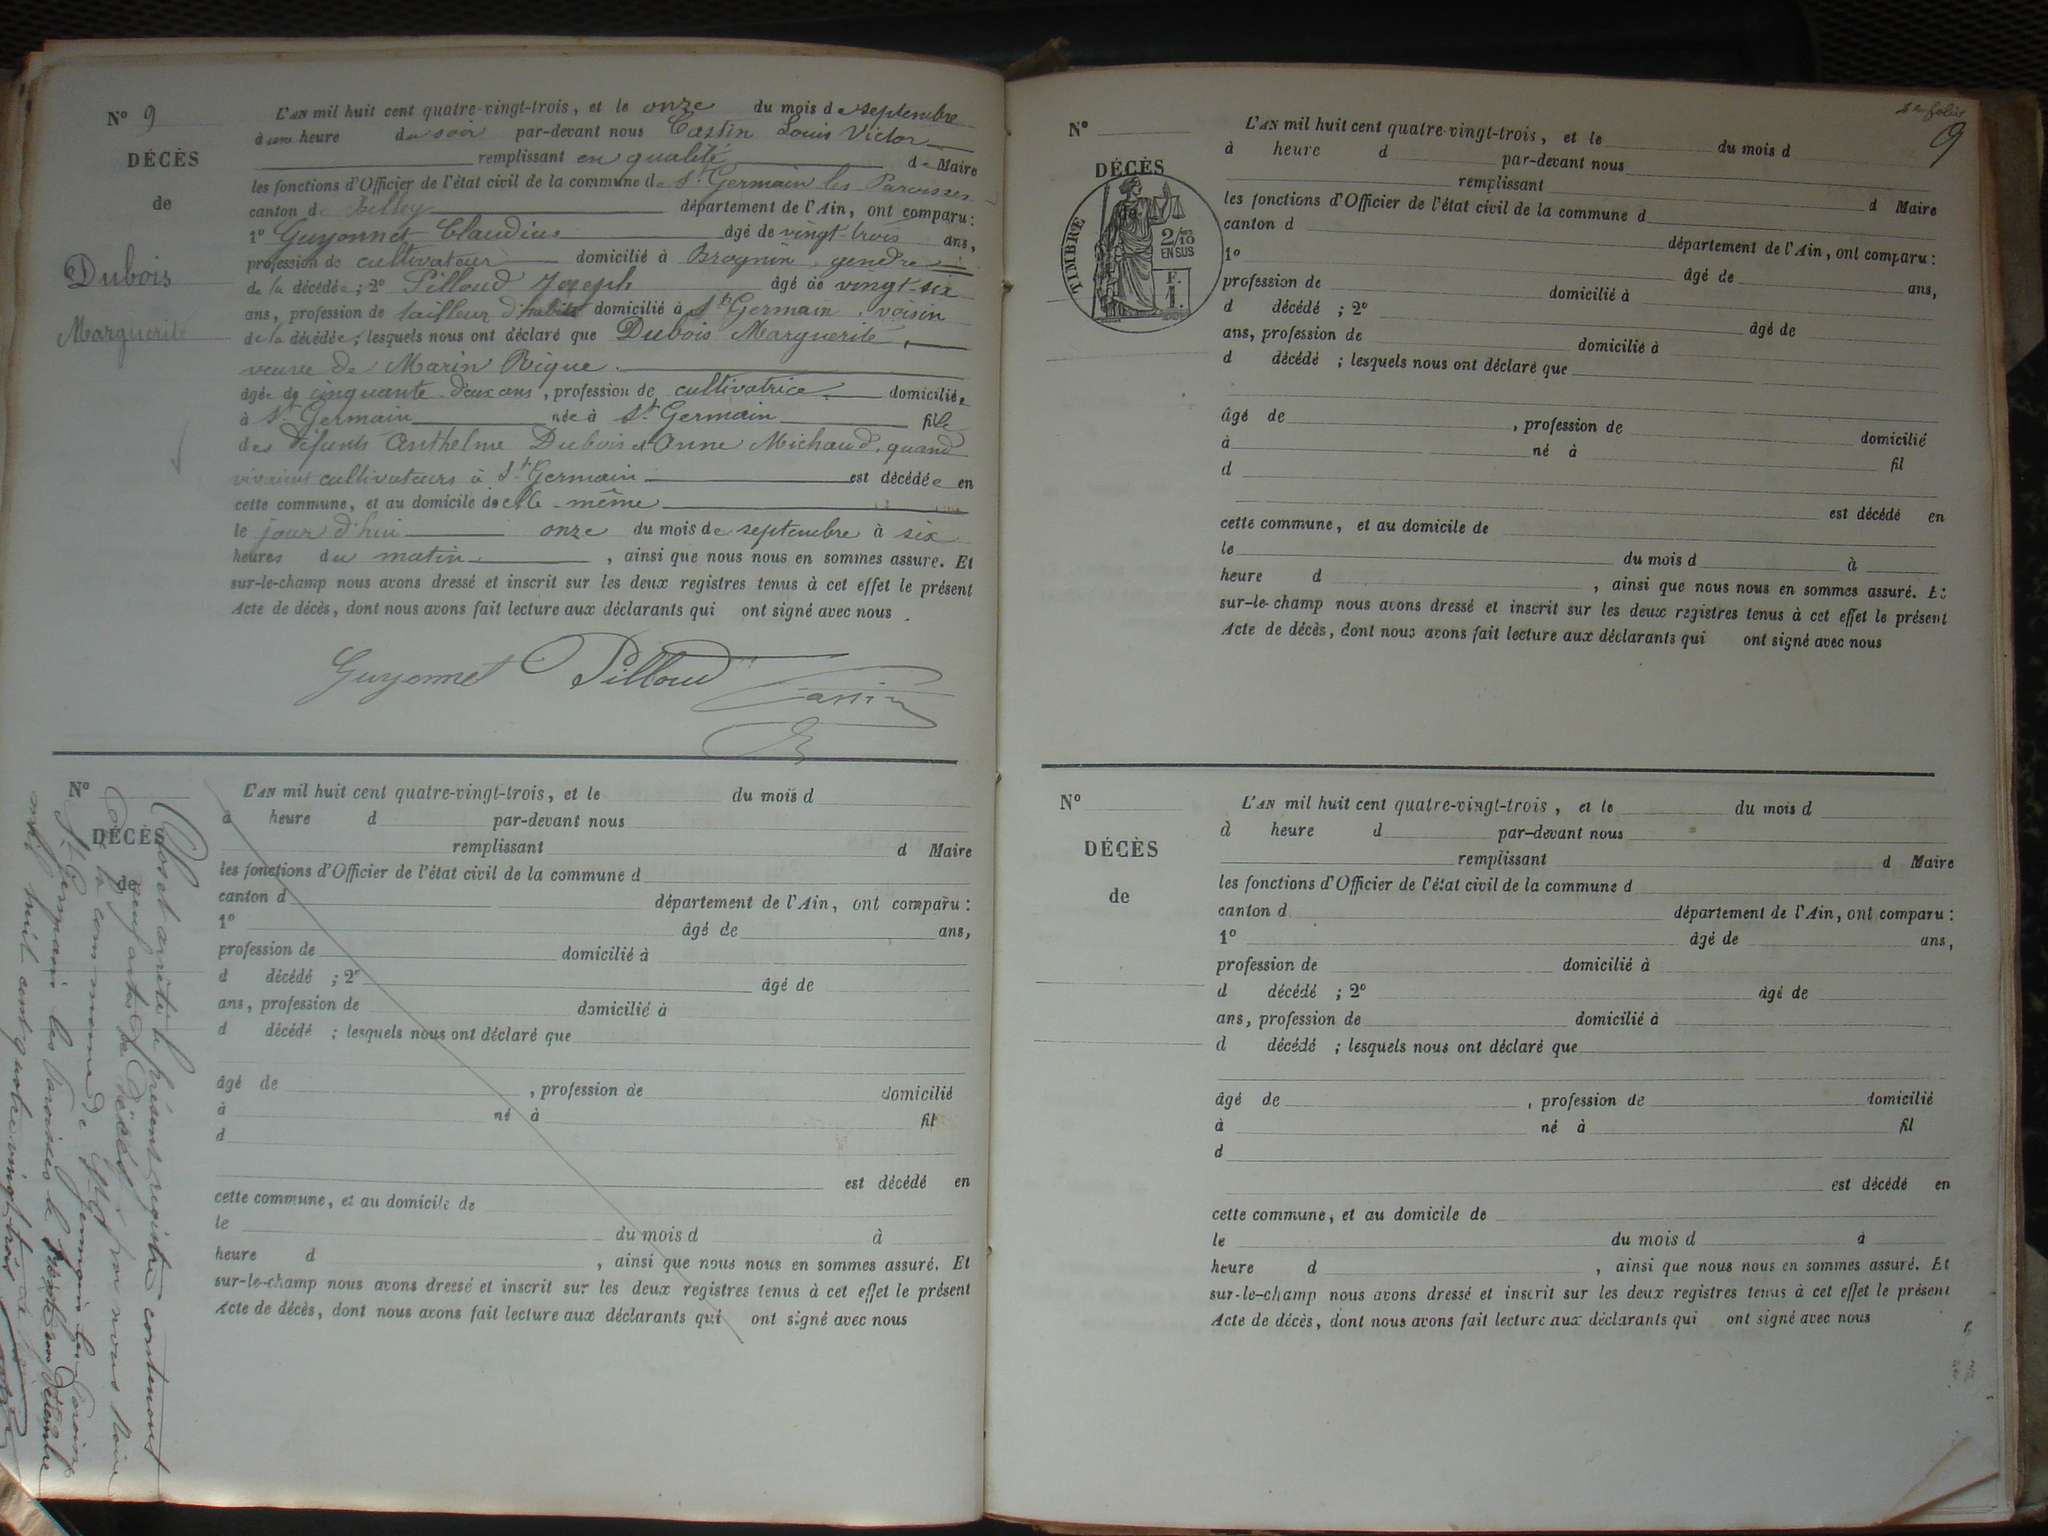 N° 9
DÉCÈS
de
Dubois
Marguerite
L'AN mil huit cent quatre-vingt-trois, et le onze du mois de septembre
à une heure du soir par-devant nous Cassin Louis Victor
remplissant en qualité de Maire
les fonctions d'Officier de l'état civil de la commune de St Germain les Paroisses
canton de Belley département de l'Ain, ont comparu:
1° Guyonnet Claudius âgé de vingt-trois ans,
profession de cultivateur domicilié à Brognin, gendre
de la décédée; 2° Pilloud Joseph âgé de vingt-six
ans, profession de tailleur d'habits domicilié à St Germain, voisin
de la décédée; lesquels nous ont déclaré que Dubois Marguerite,
veuve de Marin Bigue
âgée de cinquante-deux ans, profession de cultivatrice domiciliée
à St Germain née à St Germain fille
des défunts Anthelme Dubois et Anne Michaud, quand
vivaient cultivateurs à St Germain est décédée en
cette commune, et au domicile de elle même
le jour d'hui onze du mois de septembre à six
heures du matin, ainsi que nous nous en sommes assuré. Et
sur-le-champ nous avons dressé et inscrit sur les deux registres tenus à cet effet le présent
Acte de décès, dont nous avons fait lecture aux déclarants qui ont signé avec nous.
Guyonnet Pilloud Cassin
N°
DÉCÈS
de
Clos et arrêté le présent registre contenant
neuf actes de décès par nous Maire
de la commune de St Germain les Paroisses
St Germain les Paroisses le trente un décembre
mil huit cent quatre-vingt-trois
L'AN mil huit cent quatre-vingt-trois, et le du mois d
à heure d par-devant nous
remplissant d Maire
les fonctions d'Officier de l'état civil de la commune d
canton d département de l'Ain, ont comparu:
1° âgé de ans,
profession de domicilié à
d décédé ; 2° âgé de
ans, profession de domicilié à
d décédé ; lesquels nous ont déclaré que
âgé de , profession de domicilié
à né à fil
d
est décédé en
cette commune, et au domicile de
le du mois d à
heure d , ainsi que nous nous en sommes assuré. Et
sur-le-champ nous avons dressé et inscrit sur les deux registres tenus à cet effet le présent
Acte de décès, dont nous avons fait lecture aux déclarants qui ont signé avec nous
9
N°
DÉCÈS
de
TIMBRE
2/10
EN SUS
F.
1.
L'AN mil huit cent quatre-vingt-trois, et le du mois d
à heure d par-devant nous
remplissant d Maire
les fonctions d'Officier de l'état civil de la commune d
canton d département de l'Ain, ont comparu:
1° âgé de ans,
profession de domicilié à
d décédé ; 2° âgé de
ans, profession de domicilié à
d décédé ; lesquels nous ont déclaré que
âgé de , profession de domicilié
à né à fil
d
est décédé en
cette commune, et au domicile de
le du mois d à
heure d , ainsi que nous nous en sommes assuré. Et
sur-le-champ nous avons dressé et inscrit sur les deux registres tenus à cet effet le présent
Acte de décès, dont nous avons fait lecture aux déclarants qui ont signé avec nous
N°
DÉCÈS
de
L'AN mil huit cent quatre-vingt-trois, et le du mois d
à heure d par-devant nous
remplissant d Maire
les fonctions d'Officier de l'état civil de la commune d
canton d département de l'Ain, ont comparu:
1° âgé de ans,
profession de domicilié à
d décédé ; 2° âgé de
ans, profession de domicilié à
d décédé ; lesquels nous ont déclaré que
âgé de , profession de domicilié
à né à fil
d
est décédé en
cette commune, et au domicile de
le du mois d à
heure d , ainsi que nous nous en sommes assuré. Et
sur-le-champ nous avons dressé et inscrit sur les deux registres tenus à cet effet le présent
Acte de décès, dont nous avons fait lecture aux déclarants qui ont signé avec nous